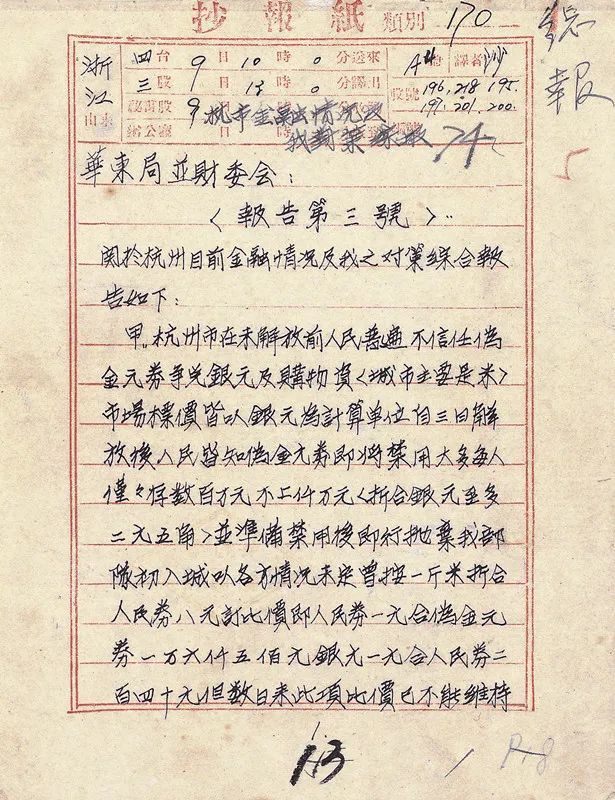 抄報紙 類別 170
總報
浙江 四台 9日10時0分送來
三股 9日13時0分譯出 收號 196, 218 195.
191. 201. 200.
杭市金融情况及
我對策综报
74
5
華東局並財委会：
〈報告第三號〉
関於杭州目前金融情况及我之对策綜合報
告如下：
甲。杭州市在未解放前人民普遍不信任偽
金元券争兑銀元及購物貨〈城市主要是米〉
市場標價皆以銀元為計算单位自三日解
放後人民皆知偽金元券即將禁用大多每人
僅々存数百万元不上仟万元〈折合銀元至多
二元五角〉並準備禁用後即行抛棄我部
隊初入城以各方情况未定曾按一斤米折合
人民券八元訂比價即人民券一元合偽金元
券一万六仟五佰元銀元一元合人民券二
百四十元但数日来此項比價已不能維持
13